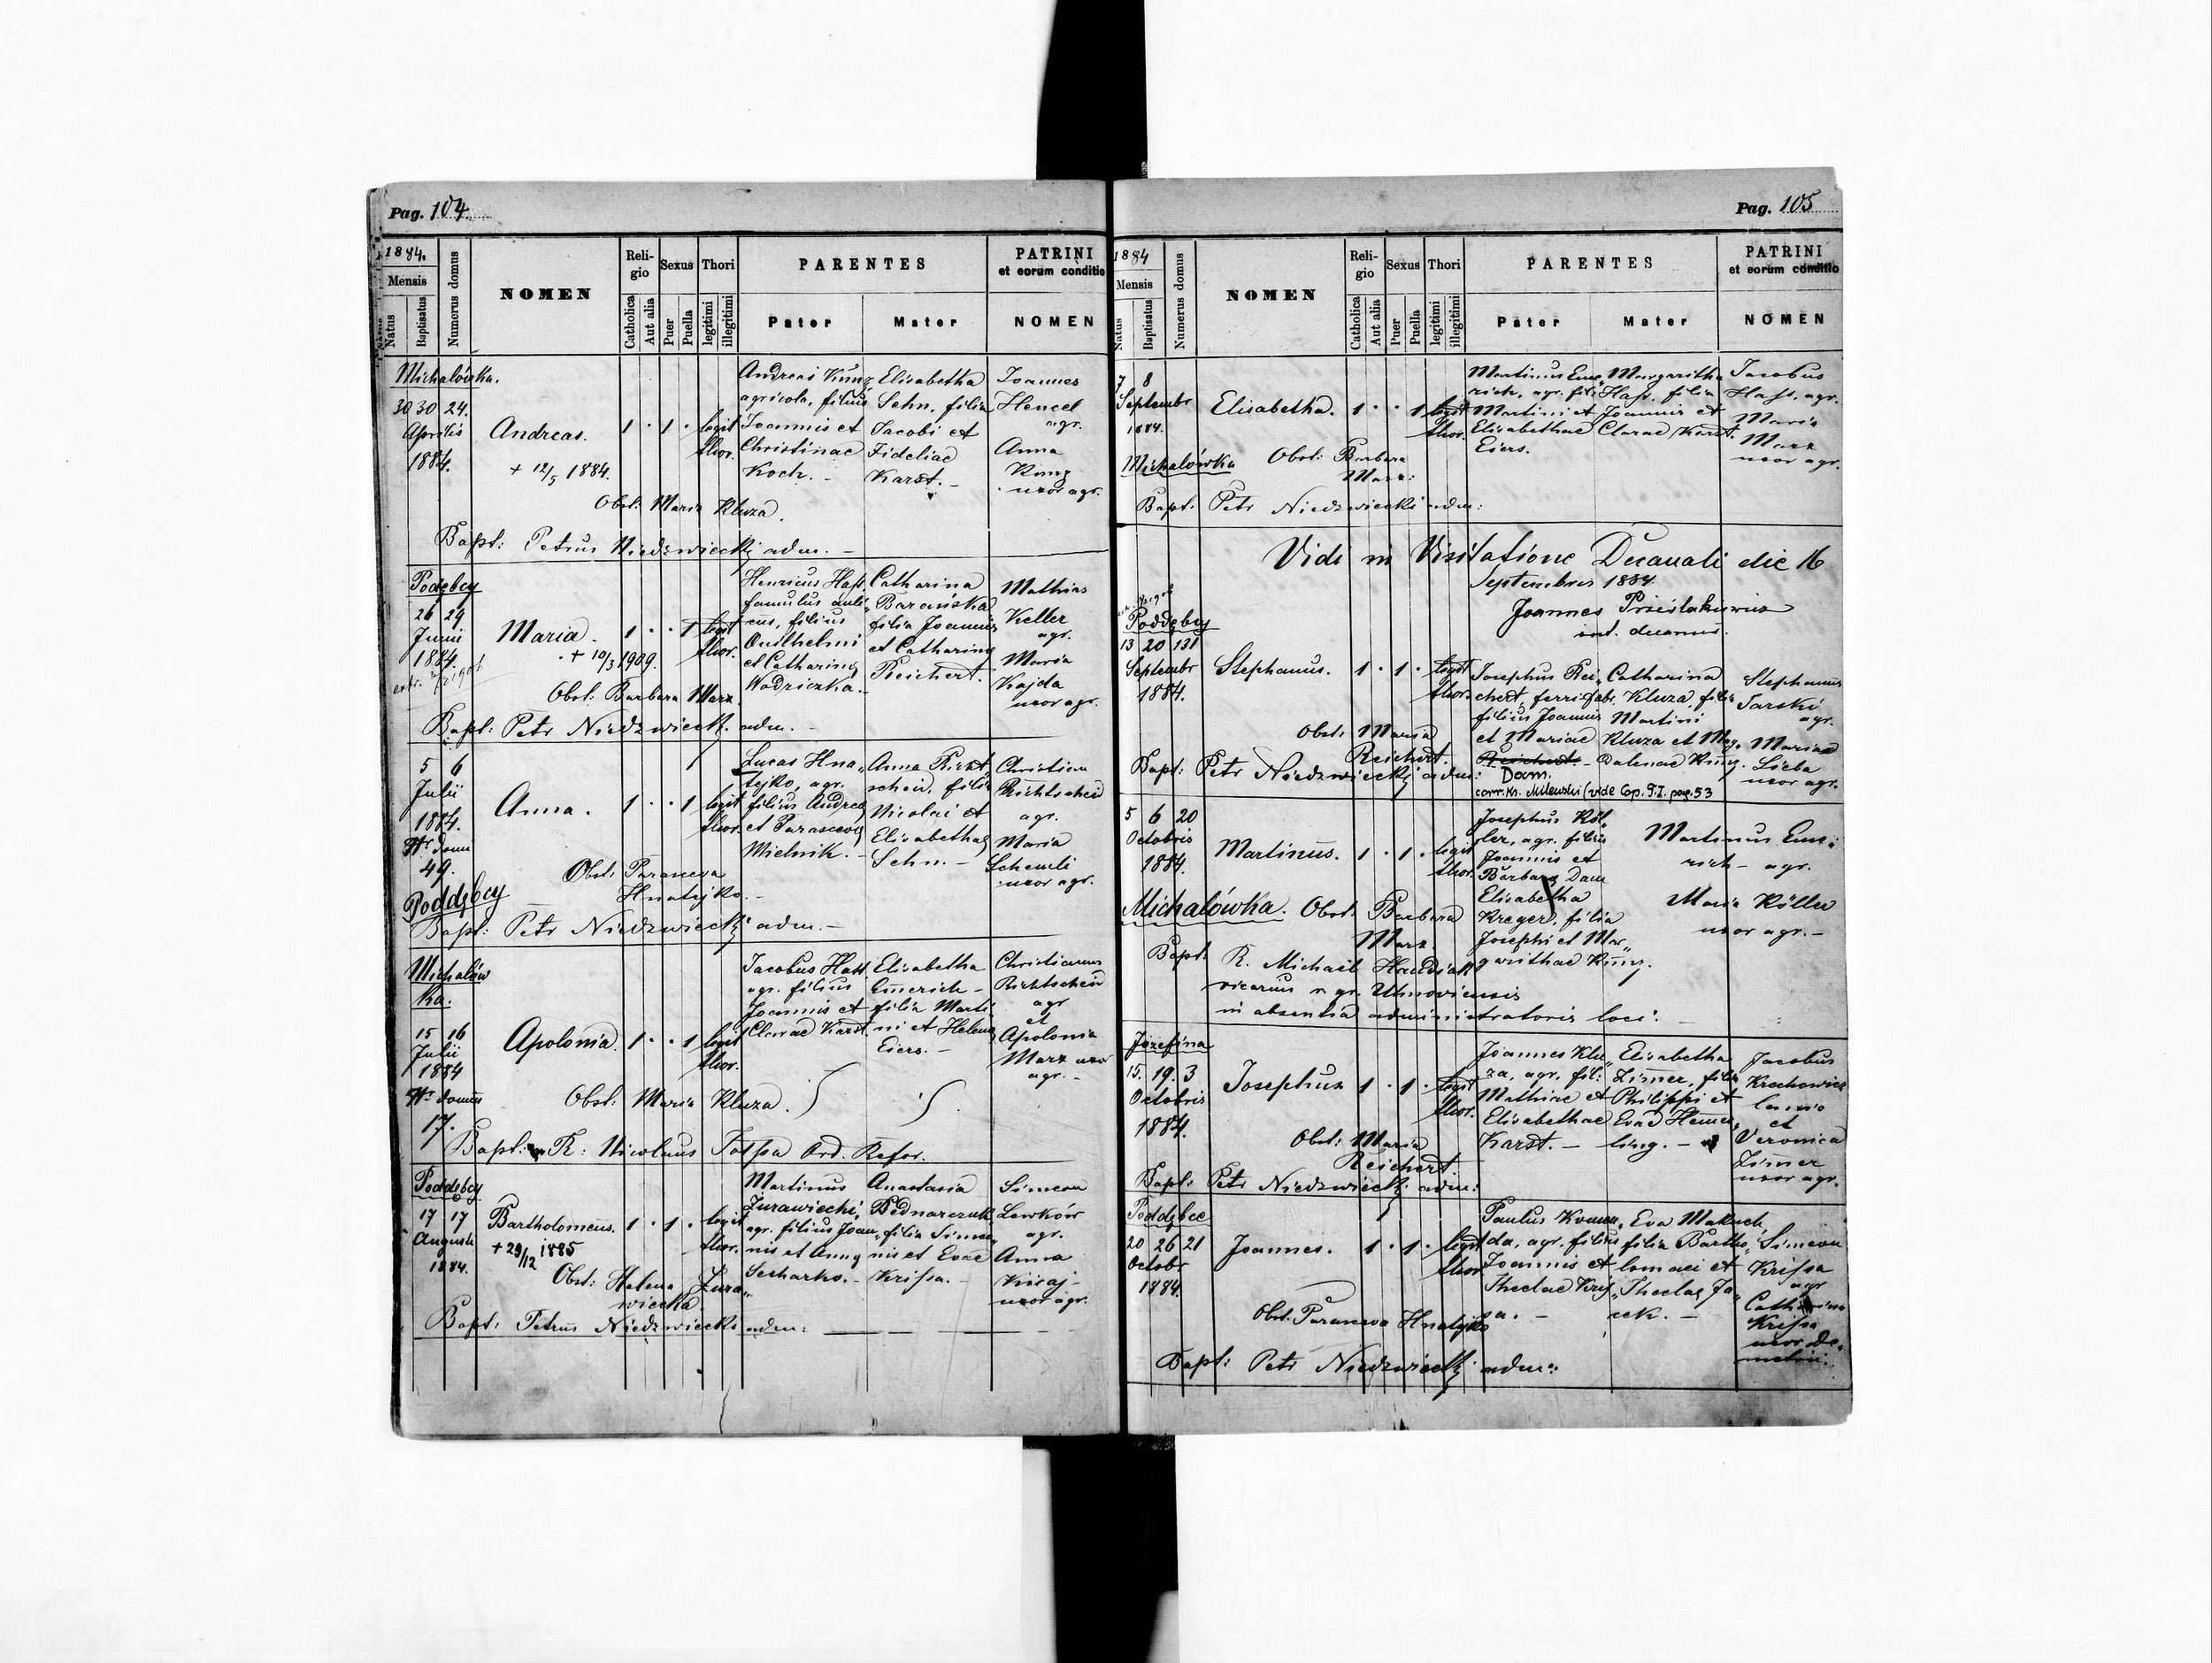 Pag. 104.
1884.
Mensis
Natus
Baptisatus
Numerus domus
NOMEN
Reli-
gio
Catholica
Aut alia
Sexus
Puer
Puella
Thori
legitimi
illegitimi
PARENTES
Pater
Mater
PATRINI
et eorum conditio
NOMEN
Michalówka.
30 30 24.
Aprilis
1884.
Andreas.
+ 12/5 1884.
1 · 1 ·
legit
thor.
Andreas Kunz
agricola, filius
Joannis et
Christinae
Koch. -
Elisabetha
Sehn, filia
Jacobi et
Fideliae
Karst. -
Joannes
Hencel
agr.
Anna
Kunz
uxor agr.
Obst: Maria Kluza.
Bapt: Petrus Niedzwiecki adm. -
Poddębcy
26 29
Junii
1884.
Maria.
+ 10/3 1909.
1 · · 1
legit
thor.
Henricus Hass,
famulus auli-
cus, filius
Guilhelmi
et Catharina
Wodriczka. -
Catharina
Barańska
filia Joannis
et Catharina
Reichert. -
Mathias
Keller
agr.
Maria
Kajda
uxor agr.
Obst: Barbara Marx.
Bapt: Petr Niedzwiecki adm. -
5 6
Julii
1884.
Nr dom
49.
Poddębcy
Anna.
1 · · 1
legit
thor.
Lucas Hna„
tejko, agr.
filius Andrea
et Parasceva
Mielnik. -
Anna Richt„
scheid, filia
Nicolai et
Elisabetha
Sehn. -
Christian
Richtscheid
agr.
Maria
Scheuli
uxor agr.
Obst: Parasceva
Hnatejko. -
Bapt: Petr Niedzwiecki adm. -
Michalów
ka.
15 16
Julii
1884
Nr domus
17.
Apolonia.
1 · · 1
legit
thor.
Jacobus Hass
agr. filius
Joannis et
Clarae Karst.
Elisabetha
Emerich -
filia Marti„
ni et Helena
Eiers. -
Christianus
Richtscheid
agr
et
Apolonia
Marx uxor
agr. -
Obst: Maria Kluza.
Bapt: R: Nicolaus Ord. Refor.
Poddębcy
17 17
Augusti
1884.
Bartholomeus.
+ 29/12 1885
1 · 1 ·
legit
thor.
Martinus
Zurawiecki,
agr. filius Joan„
nis et Anna
Secharko. -
Anastasia
Bednarczuk
filia Simeo„
nis et Evae
Krissa. -
Simeon
Lewków
agr.
Anna
Kicaj -
uxor agr.
Obst: Helena Zura„
wiecka.
Bapt: Petrus Niedzwiecki adm:
Pag. 105
1884
Mensis
Natus
Baptisatus
Numerus domus
NOMEN
Reli-
gio
Catholica
Aut alia
Sexus
Puer
Puella
Thori
legitimi
illegitimi
PARENTES
Pater
Mater
PATRINI
et eorum conditio
NOMEN
7 8
Septembr
1884.
Michalówka
Elisabetha.
1 · · 1
legit
thor.
Martinus Eme„
rich, agr. fili
Martini et
Elisabethae
Eiers.
Margaritha
Hass, filia
Joannis et
Clarae Karst.
Jacobus
Hass, agr.
Maria
Marx
uxor agr.
Obst: Barbara
Marx:
Bapt: Petr Niedzwiecki adm:
Vidi in Visitatione Decanali die 16
Septembris 1884.
Joannes
int. decanus.
Poddębcy
13 20 131
Septembr
1884.
Stephanus.
1 · 1 ·
legit
thor.
Josephus Rei„
chert, ferri fabr.
filius Joannis
et Mariae
Reichert. -
Dam.
corr. Ks. Milewski (vide Cop. T.I. pag. 53
Catharina
Kluza, filia
Martini
Kluza et Mag„
dalenae Kunz.
Stephanus
Tarski
agr.
Mariae
Sieta
uxor agr.
Obst: Maria
Reichert.
Bapt: Petr Niedzwiecki adm:
5 6 20
Octobris
1884.
Martinus.
1 · 1 ·
legit
thor.
Josephus Köl„
ler, agr. filius
Joannis et
Barbara Dam
Elisabetha
Kreger, filia
Josephi et Mar„
garithae Kunz.
Martinus Eme:
rich - agr.
Maria Köller
uxor agr. -
Michalówka. Obst: Barbara
Marx.
Bapt: R. Michael Handiak
vicarius r. gr. Uhnoviensis
in absentia administratoris loci: -
Józefina
15. 19. 3
Octobris
1884.
Josephus
1 · 1 ·
legit
thor.
Joannes Klu„
za, agr. fil:
Mathiae et
Elisabethae
Karst. -
Elisabetha
Zimer, filia
Philippi et
Evae Hemer„
ling. -
Jacobus
Krechowicz
lanio
et
Veronica
Zimer
uxor agr.
Obst: Maria
Reichert
Bapt: Petr Niedzwiecki adm:
Poddębce
20 26 21
Octobr
1884.
Joannes.
1 · 1 ·
legit
thor
Paulus Komen„
da, agr. filius
Joannis et
Theclae Kris„
sa. -
Eva Makuch,
filia Bartho„
lomaei et
Thecla Ja„
cek. -
Simeon
Krissa
agr
Catharina
Krissa
uxor De„
metrii.
Obst. Parasceva Hnatejko
Bapt: Petr Niedzwiecki adm: